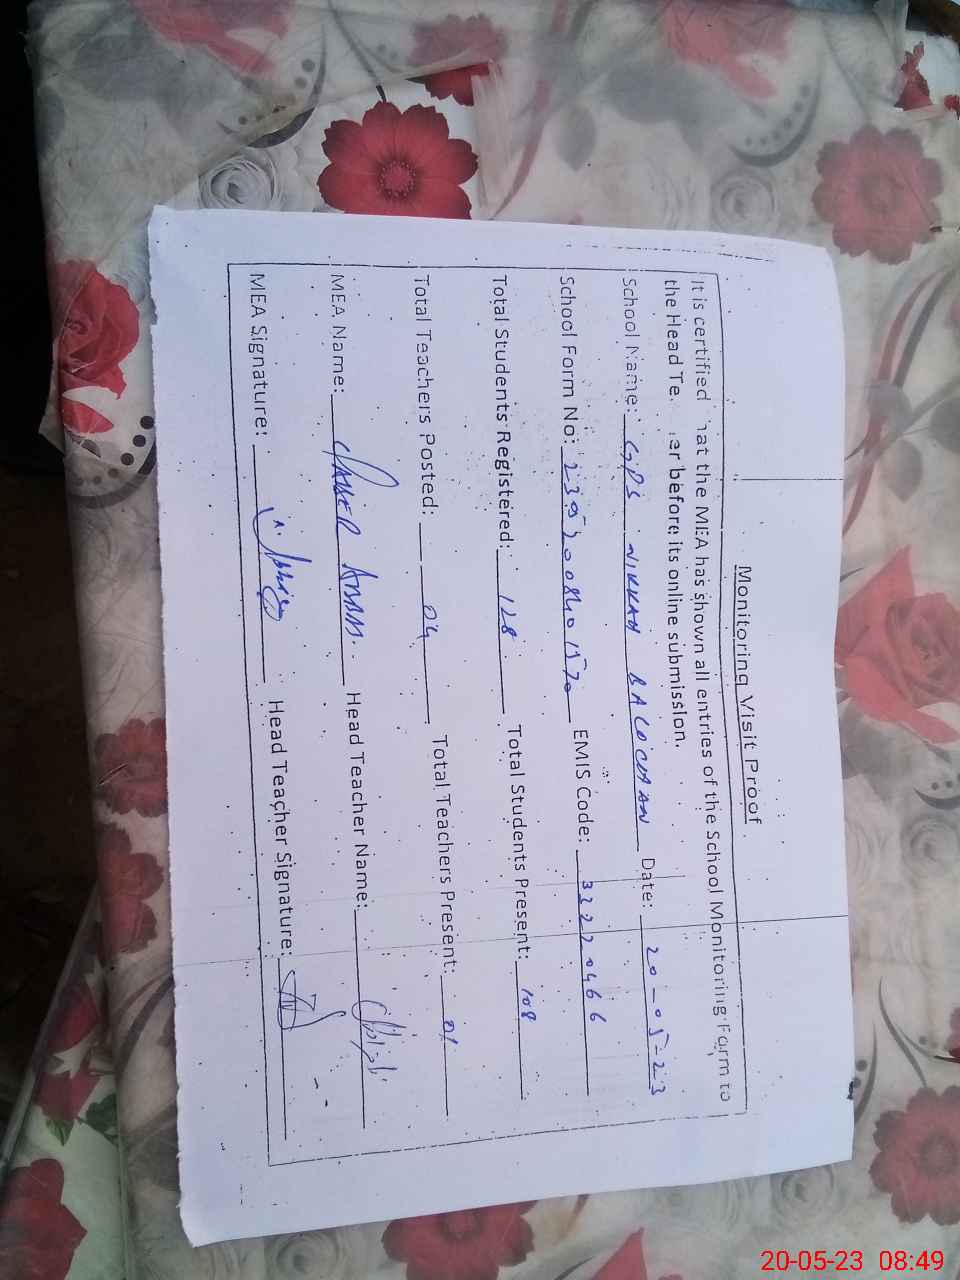 Monitoring Visit Proof
It is certified that the MEA has shown all entries of the School Monitoring Form to
the Head Te er before its online submission.
School Name: GPS NIKKAH BALOCHAN Date: 20-05-23
School Form No: EMIS Code: 32270466
Total Students Registered: 128 Total Students Present: 108
Total Teachers Posted: 04 Total Teachers Present:
MEA Name: Head Teacher Name:
MEA Signature: Head Teacher Signature:
20-05-23 08:49